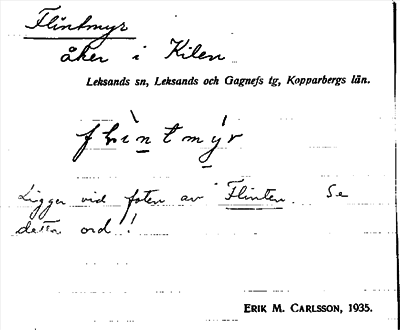 Flintmyr
åker i Kilen
Leksands sn, Leksands och Gagnefs tg, Kopparbergs län.
flìntmýr
Ligger vid foten av Flinten. Se
detta ord!
ERIK M. CARLSSON, 1935.